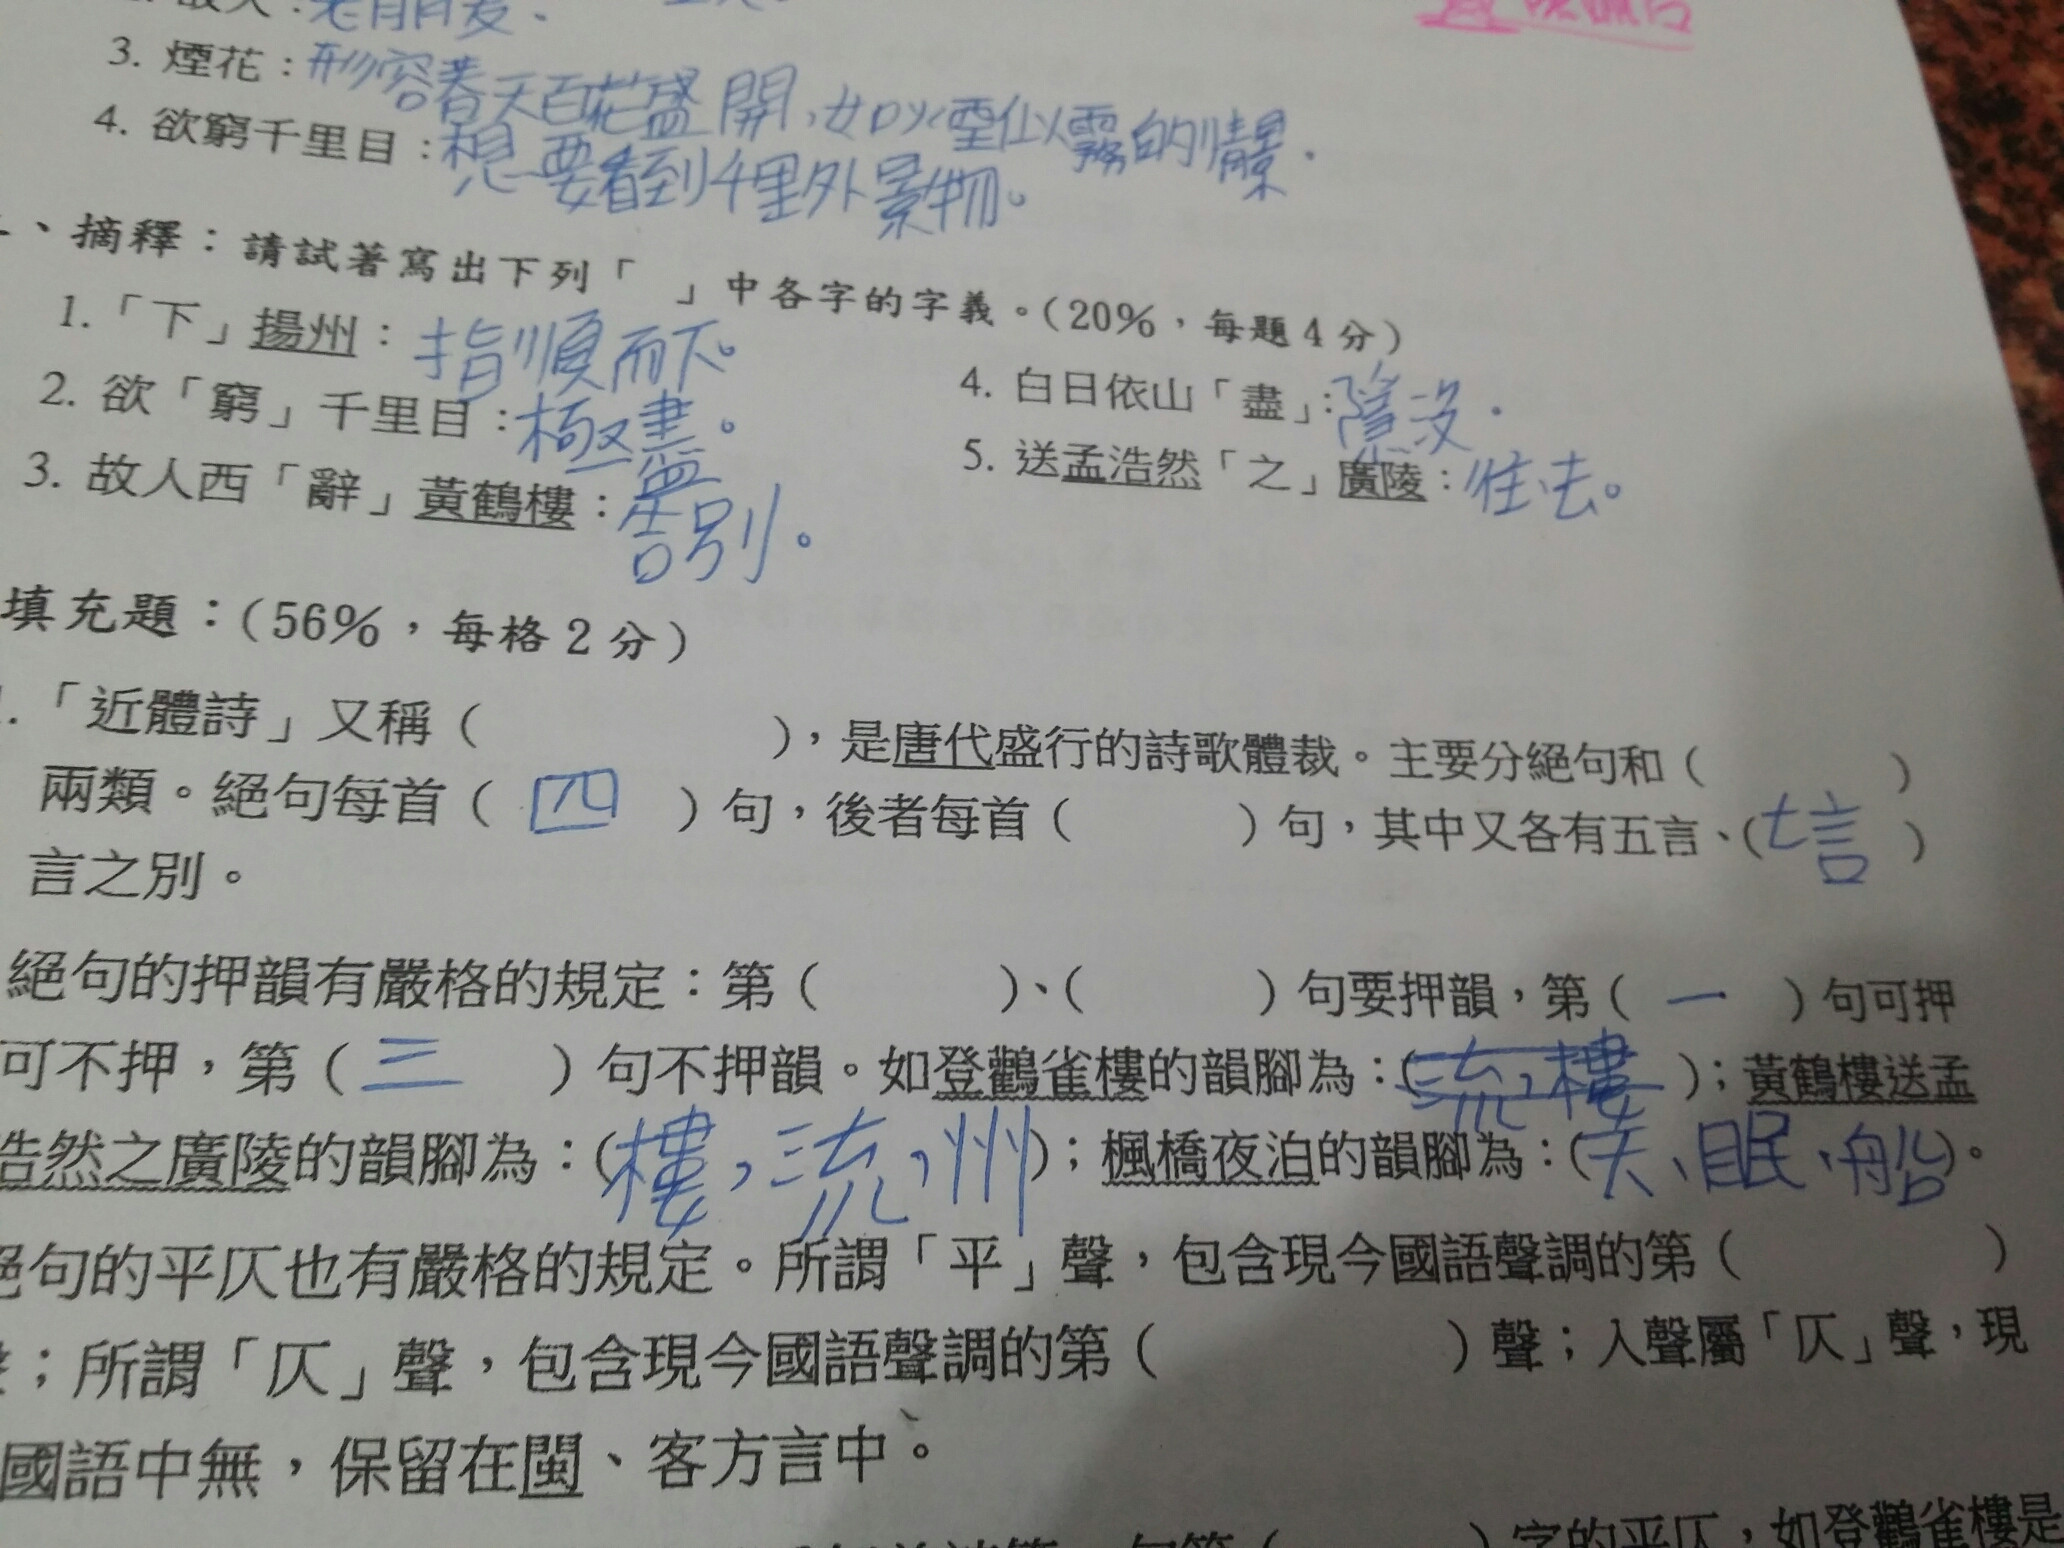 故人：老朋友、
3. 煙花：形容春天百花盛開，如煙似霧的情景．
4. 欲窮千里目：想要看到千里外景物。
、摘釋：請試著寫出下列「 」中各字的字義。（20%，每題4分）
1.「下」揚州：指順而下。
2. 欲「窮」千里目：極盡。
3. 故人西「辭」黃鶴樓：告別。
4. 白日依山「盡」：隱沒．
5. 送孟浩然「之」廣陵：往、去。
填充題：（56%，每格2分）
1.「近體詩」又稱（ ），是唐代盛行的詩歌體裁。主要分絕句和（ ）
兩類。絕句每首（四）句，後者每首（ ）句，其中又各有五言、（七言）
言之別。
絕句的押韻有嚴格的規定：第（ ）、（ ）句要押韻，第（一）句可押
可不押，第（三）句不押韻。如登鸛雀樓的韻腳為：（流，樓）；黃鶴樓送孟
浩然之廣陵的韻腳為：（樓，流，州）；楓橋夜泊的韻腳為：（天、眠、船）。
絕句的平仄也有嚴格的規定。所謂「平」聲，包含現今國語聲調的第（ ）
聲；所謂「仄」聲，包含現今國語聲調的第（ ）聲；入聲屬「仄」聲，現
國語中無，保留在閩、客方言中。
（ ）字的平仄，如登鸛雀樓是